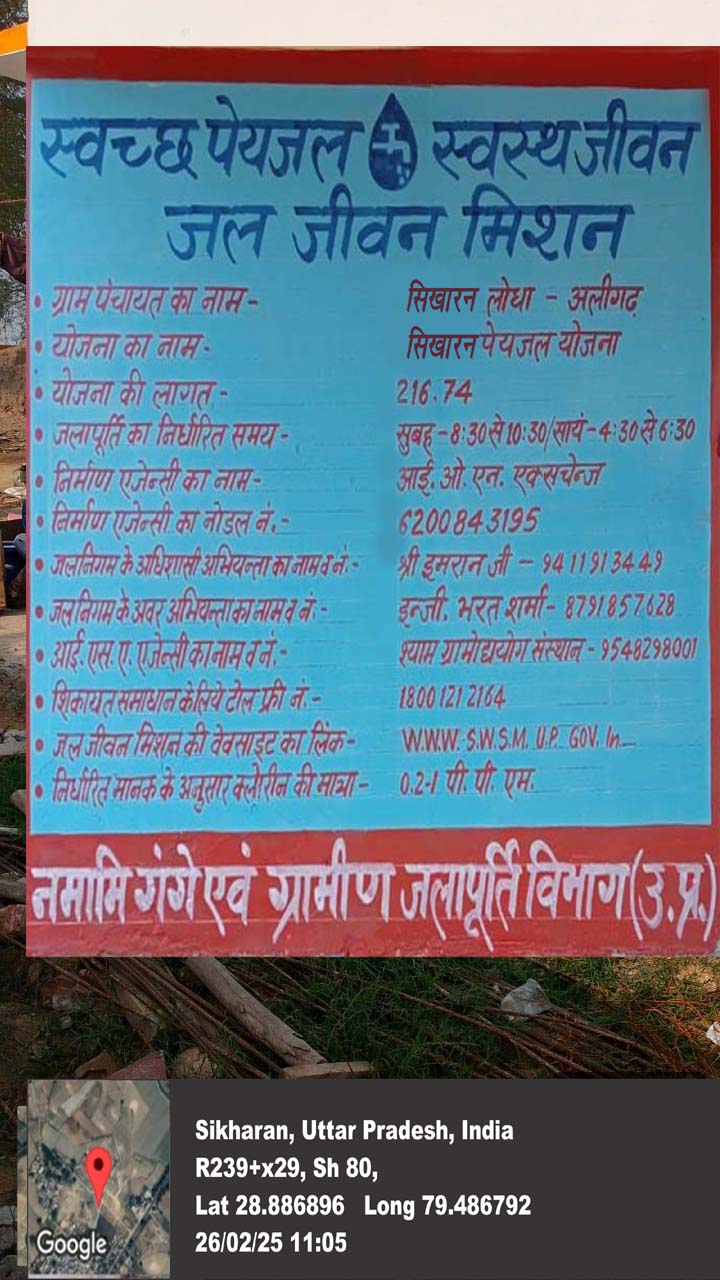 स्वच्छ पेयजल स्वस्थ जीवन
जल जीवन मिशन
• ग्राम पंचायत का नाम - सिखारन लोधा - अलीगढ़
• योजना का नाम - सिखारन पेयजल योजना
• योजना की लागत - 216.74
• जलापूर्ति का निर्धारित समय - सुबह - 8:30 से 10:30/सायं - 4:30 से 6:30
• निर्माण एजेन्सी का नाम - आई. ओ. एन. एक्सचेन्ज
• निर्माण एजेन्सी का नोडल नं. - 6200843195
• जलनिगम के अधिशासी अभियन्ता का नाम व नं. - श्री इमरान जी - 9411913449
• जलनिगम के अवर अभियन्ता का नाम व नं. - इन्जी. भरत शर्मा - 8791857628
• आई. एस. ए. एजेन्सी का नाम व नं. - श्याम ग्रामोद्ययोग संस्थान - 9548298001
• शिकायत समाधान के लिये टोल फ्री नं. - 1800 121 2164
• जल जीवन मिशन की वेवसाइट का लिंक - W.W.W. S.W.S.M. U.P. GOV. In....
• निर्धारित मानक के अनुसार क्लोरीन की मात्रा - 0.2-1 पी. पी. एम.
नमामि गंगे एवं ग्रामीण जलापूर्ति विभाग (उ.प्र.)
Sikharan, Uttar Pradesh, India
R239+x29, Sh 80,
Lat 28.886896 Long 79.486792
26/02/25 11:05
Google